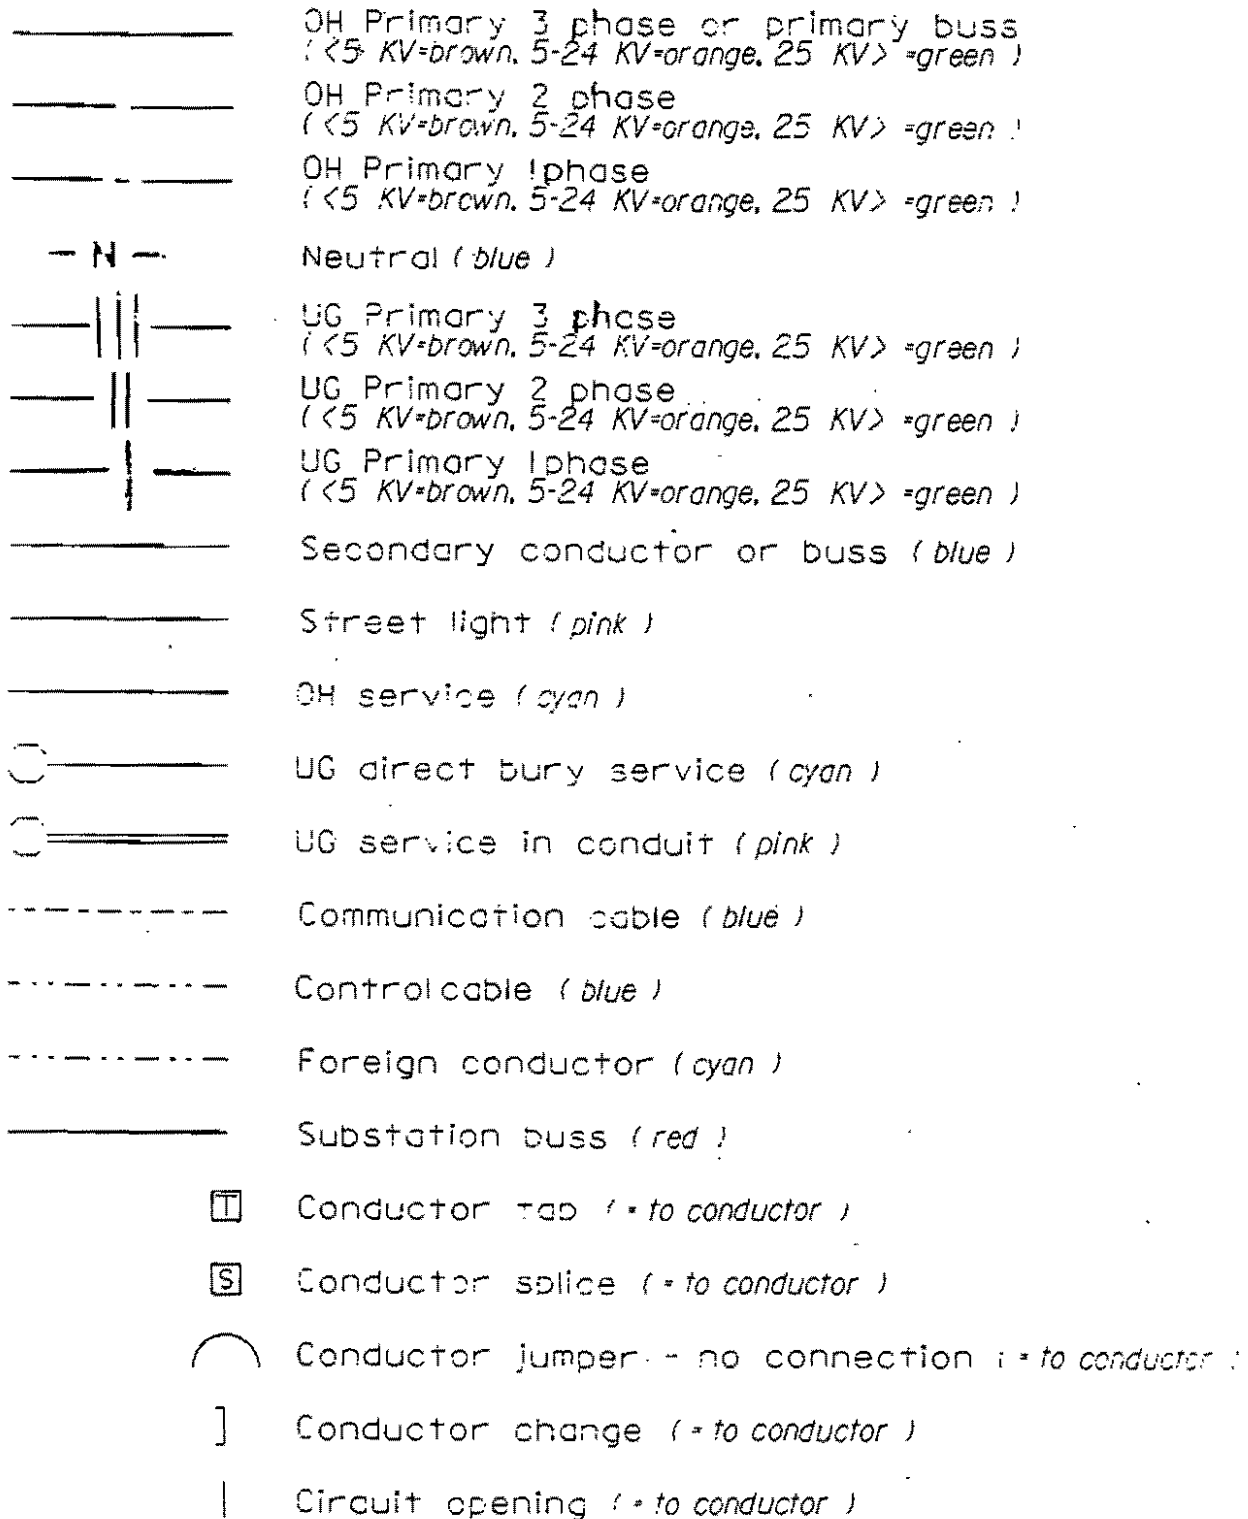 OH Primary 3 phase or primary buss
( <5 KV=brown, 5-24 KV=orange, 25 KV> =green )
OH Primary 2 phase
( <5 KV=brown, 5-24 KV=orange, 25 KV> =green )
OH Primary 1phase
( <5 KV=brown, 5-24 KV=orange, 25 KV> =green )
- N - Neutral ( blue )
UG Primary 3 phase
( <5 KV=brown, 5-24 KV=orange, 25 KV> =green )
UG Primary 2 phase
( <5 KV=brown, 5-24 KV=orange, 25 KV> =green )
UG Primary 1phase
( <5 KV=brown, 5-24 KV=orange, 25 KV> =green )
Secondary conductor or buss ( blue )
Street light ( pink )
OH service ( cyan )
UG direct bury service ( cyan )
UG service in conduit ( pink )
Communication cable ( blue )
Control cable ( blue )
Foreign conductor ( cyan )
Substation buss ( red )
T Conductor tap ( = to conductor )
S Conductor splice ( = to conductor )
Conductor jumper - no connection ( = to conductor )
Conductor change ( = to conductor )
Circuit opening ( = to conductor )